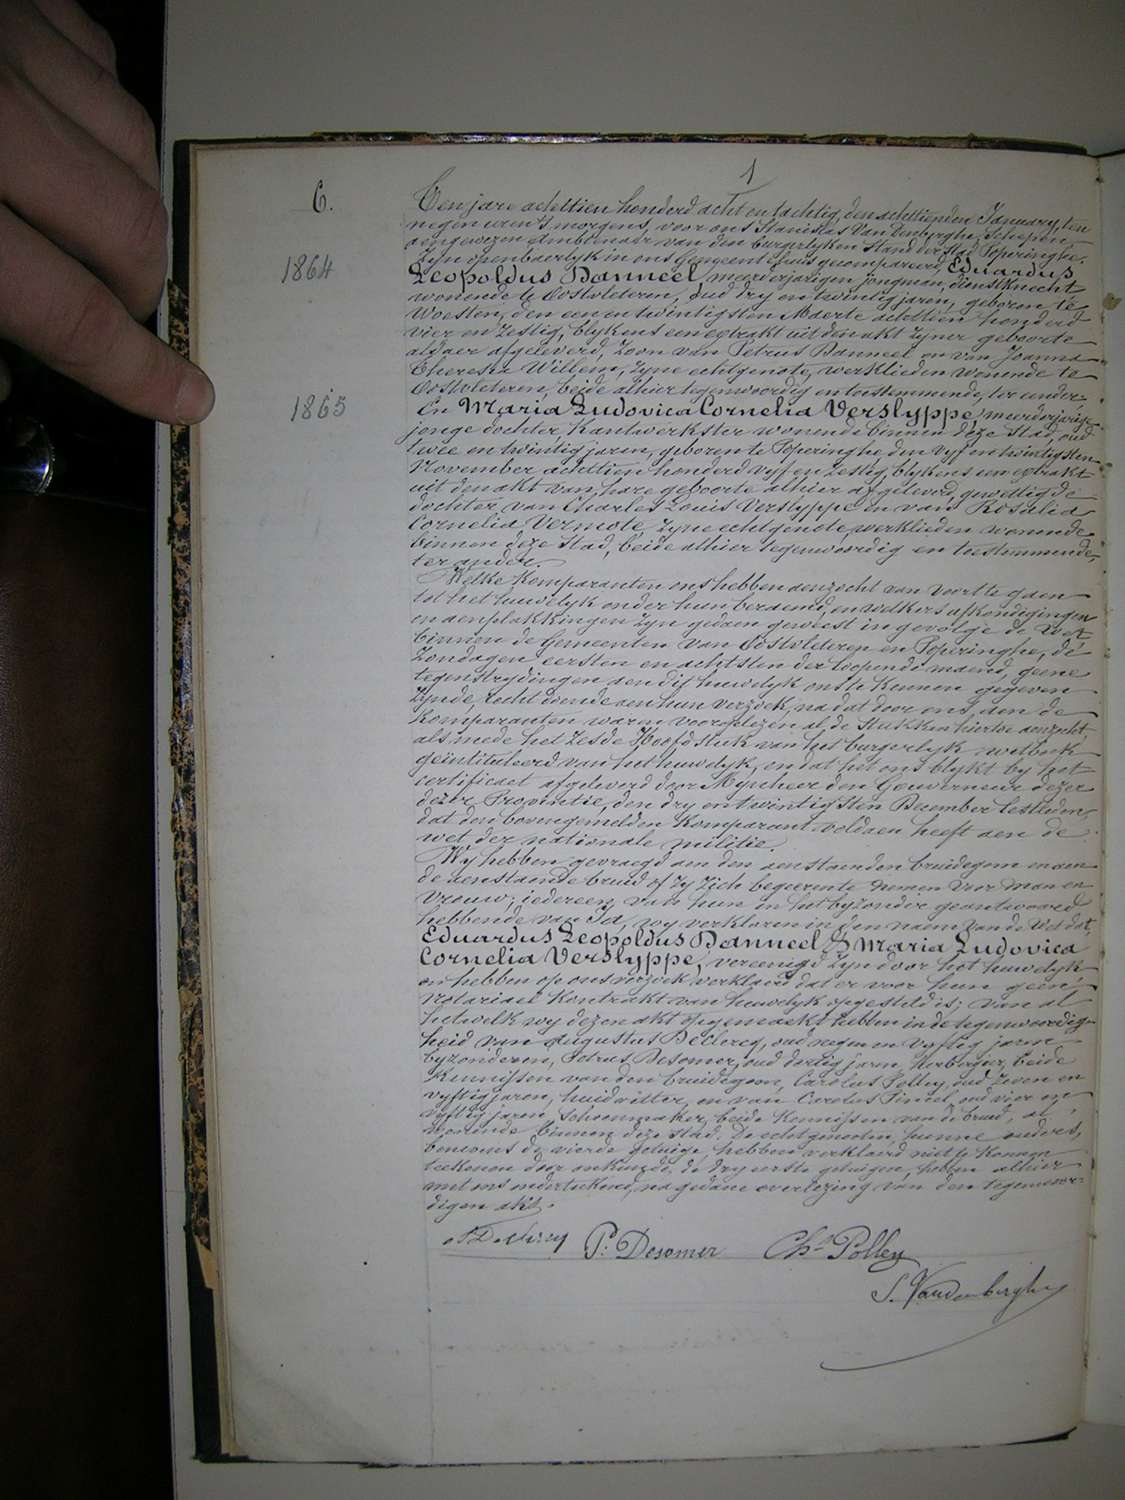 1
6.
Ten jare achttien honderd acht en tachtig, den achttienden January, ten
negen uren 's morgens, voor ons Stanislas Van Denberghe, Schepen,
aengewezen Ambtenaer van den Burgerlyken Stand der Stad Poperinghe,
zyn openbaerlyk in ons Gemeente huis gecompareerd, Eduardus
1864
Leopoldus Danneel, meerderjarigen jongman, dienstknecht
wonende te Oostvleteren, oud dry en twintig jaren, geboren te
Woesten, den een en twintigsten Maerte achttien honderd
vier en zestig, blykens een extrakt uit den akt zyner geboorte
aldaer afgeleverd, zoon van Petrus Danneel en van Joanna
Theresia Willem, zyne echtgenote, werklieden wonende te
Oostvleteren, beide alhier tegenwoordig en toestemmende, ter eender.
1865
En Maria Ludovica Cornelia Verslyppe, meerderjarige
jonge dochter, kantwerkster wonende binnen deze Stad, oud
twee en twintig jaren, geboren te Poperinghe, den vyf en twintigsten
November achttien honderd vyf en zestig, blykens een extrakt
uit den akt van hare geboorte alhier afgeleverd, gewettigde
dochter van Charles Louis Verslyppe en van Rosalia
Cornelia Vermote zyne echtgenote, werklieden wonende
binnen deze Stad, beide alhier tegenwoordig en toestemmende,
ter ander.
Welke komparanten ons hebben aenzocht van voort te gaen
tot het huwelyk onder hun beraemd, en welkers afkondigingen
en aenplakkingen zyn gedaen geweest in gevolge de Wet
binnen de Gemeenten van Oostvleteren en Poperinghe, de
Zondagen eersten en achtsten der loopende maend, geene
tegenstrydingen aen dit huwelyk ons te kennen gegeven
zynde, recht doende aen hun verzoek, na dat door ons aen de
komparanten waren voorgelezen al de Stukken hiertoe aenzocht,
als mede het zesde Hoofdstuk van het burgerlyk wetboek
geïntituleerd van het huwelyk, en dat het ons blykt by het
certificaet afgeleverd door Mynheer den Gouverneur dezer
dezer Provintie, den dry en twintigsten December lestleden,
dat den bovengemelden komparant voldaen heeft aen de
wet der nationale militie.
Wy hebben gevraegd aen den aenstaenden bruidegom en aen
de aenstaende bruid of zy zich begeerente nemen voor man en
vrouw; iedereen van hun in het byzonder geantwoord
hebbende van Ja, wy verklaren in den naem van de Wet dat,
Eduardus Leopoldus Danneel & Maria Ludovica
Cornelia Verslyppe, vereenigd zyn door het huwelyk
en hebben op ons verzoek verklaerd dat er voor hun geen
Notariael Kontrakt van huwelyk opgesteld is; van al
hetwelk wy dezen akt opgemaekt hebben in de tegenwoordig-
heid van Augustus Declercq, oud negen en vyftig jaren
byzonderen, Petrus Desomer, oud dertig jaren Herbergier, beide
Kennissen van den bruidegom, Carolus Polley, oud zeven en
vyftig jaren, huidvetter, en van Carolus Pinceel, oud vier en
vyftig jaren, Schoenmaker, beide Kennissen van de bruid, al
wonende binnen deze Stad. De echtgenooten, hunne ouders,
benevens de vierde getuige, hebben verklaerd niet te konnen
teekenen door onkunde, de dry eerste getuigen, hebben alhier
met ons onderteekend, na gedane overlezing van den tegenwoor-
digen akt.
P: Desomer Chs Polley
S. Vandenberghe